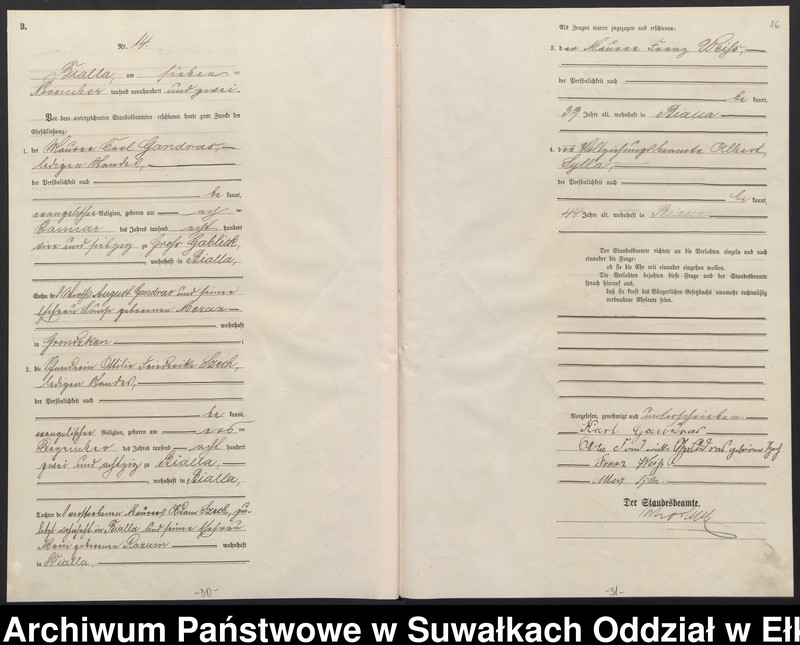 B.
Nr. 14.
Bialla, am sieben
November tausend neunhundert und zwei.
Vor dem unterzeichneten Standesbeamten erschienen heute zum Zwecke der
Eheschließung:
1. der Maurer Carl Gandras,
ledigen Standes,
der Persönlichkeit nach
be kannt,
evangelischer Religion, geboren am acht
Januar des Jahres tausend acht hundert
vier und siebzig zu Groß Gablick,
, wohnhaft in Bialla,
Sohn des August Gandras und seiner
Ehefrau Louise geborenen
wohnhaft
in
2. die Ottilie Friederike Szech,
ledigen Standes,
der Persönlichkeit nach
be kannt,
evangelischer Religion, geboren am
Dezember des Jahres tausend acht hundert
zwei und achtzig zu Bialla,
, wohnhaft in Bialla,
Tochter des verstorbenen Maurers Adam Szech, zu-
letzt wohnhaft in Bialla und seiner Ehefrau
geborenen wohnhaft
in Bialla.
-30-
86
Als Zeugen waren zugezogen und erschienen:
3. der Maurer Franz Weiß,
der Persönlichkeit nach
be kannt,
39 Jahre alt, wohnhaft in Bialla
4. der Vollziehungsbeamte Albert
Sylla,
der Persönlichkeit nach
be kannt,
44 Jahre alt, wohnhaft in Bialla
Der Standesbeamte richtete an die Verlobten einzeln und nach
einander die Frage:
ob sie die Ehe mit einander eingehen wollen.
Die Verlobten bejahten diese Frage und der Standesbeamte
sprach hierauf aus,
daß sie kraft des Bürgerlichen Gesetzbuchs nunmehr rechtmäßig
verbundene Eheleute seien.
Vorgelesen, genehmigt und unterschrieben
Karl Gandras
geborene
Franz Weiß
Der Standesbeamte.
-31-
Archiwum Państwowe w Suwałkach Oddział w Ełk